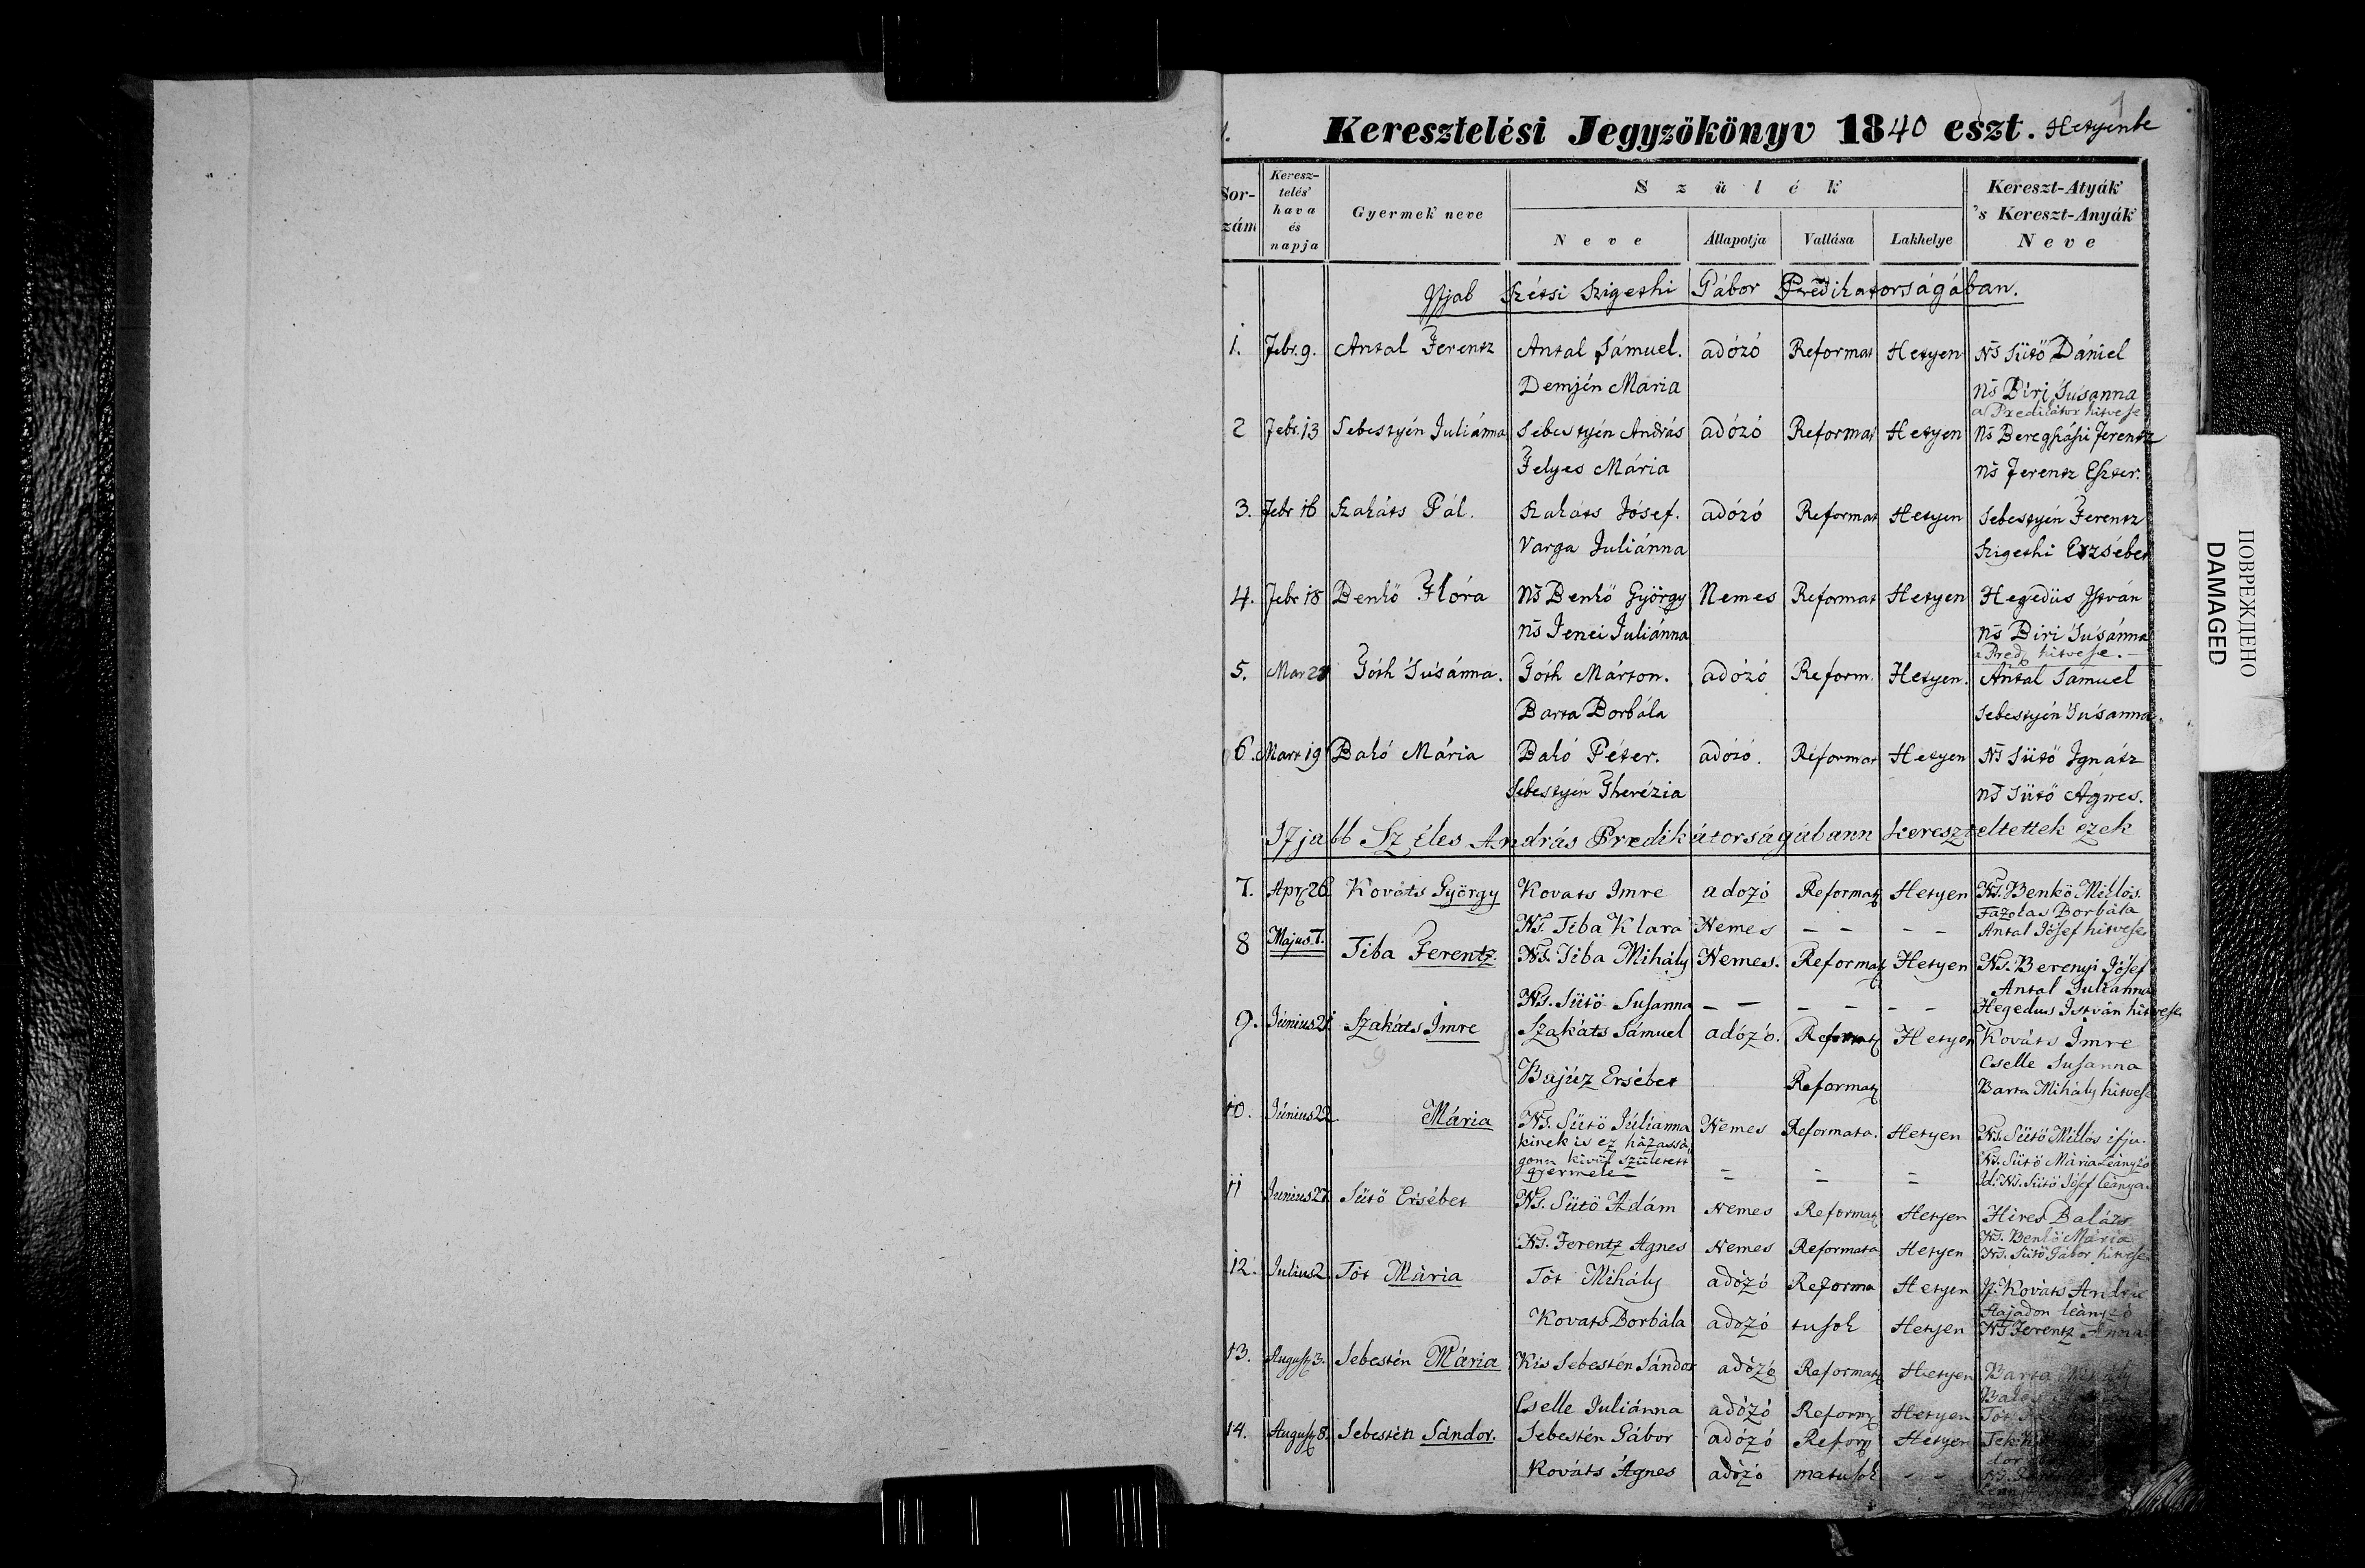 1
1.
Keresztelési Jegyzökönyv 1840 eszt. Hetyenbe
Sor-
szám
Keresz-
telés'
hava
és
napja
Gyermek neve
Szülék
Neve
Állapotja
Vallása
Lakhelye
Kereszt-Atyák
's Kereszt-Anyák
Neve
Ifjab Szétsi Szigethi Gábor Predikatorságában.
1. Febr. 9. Antal Ferentz Antal Sámuel. adózó Reformat Hetyen Ns Sütő Dániel
Demjén Maria Ns Biri Susanna
a Predikátor hitvese
2 Febr. 13 Sebestyén Juliánna Sebestyén András adózó Reformat Hetyen Ns Beregszászi Ferentz
Felyes Mária Ns Ferentz Eszter.
3. Febr 16 Szakáts Pál. Szakáts Jósef. adózó Reformat Hetyen Sebestyén Ferentz
Varga Juliánna Szigethi Erzsébet
4. Febr 18 Benkö Flóra Ns Benkö György Nemes Reformat Hetyen Hegedüs István
Ns Jenei Juliánna Ns Biri Susánna
a Pred hitvese.
5. Mar Góth Susánna. Góth Márton. adózó Reform. Hetyen. Antal Samuel
Barta Borbála Sebestyén Susanna
6. Mart 19 Bakó Mária Bakó Péter. adózó. Reformat Hetyen Ns Sütö Ignátz
Sebestyén Therézia Ns Sütö Ágnes.
Ifjabb Széles András Predikátorságábann kereszteltettek ezek
7. Apr 26 Kováts György Kovats Imre adozó Reformat Hetyen Ns. Benkö Miklós.
Ns. Tiba Klara Nemes - - - - Fazolas Borbála
Antal Jósef hitvese
8 Május 7. Tiba Ferentz. Ns. Tiba Mihály Nemes. Reformat Hetyen Ns. Berenyi Jósef
Ns. Sütö Susanna - - - - - - Antal Julianna
Hegedus István hitvese
9. Június 21 Szakáts Imre Szakáts Sámuel adózó. Reformat Hetyen Kováts Imre
9
Bajúz Ersébet Reformat Cselle Susanna
Barta Mihály hitvese
10. Június 22. Mária Ns. Sütö Júlianna Nemes Reformata. Hetyen Ns. Sütö Miklós ifju.
kinek is ez házassá
gonn kivül született
gyermeke - - - Ns. Sütö Mária Leányzó
Id. Ns. Sütö Jósef leánya.
11 Junius 27. Sütö Ersébet Ns. Sütö Adám Nemes Reformat Hetyen Hires Balázs
Ns. Ferentz Agnes Nemes Reformata Hetyen Ns. Benkö Mária
Ns. Sütö Gábor hitvese
12. Julius 2. Tót Mária Tót Mihály adózó Reforma Hetyen If. Kováts András
Kovats Borbála adozó tusok Hetyen Hajadon leányzó
Ns Ferentz Anna
13. August 3. Sebestén Mária Kis Sebestén Sándor adózó Reformat Hetyen Barta Mihály
Cselle Juliánna adózó Reform Hetyen
Tót
14. August 8. Sebestén Sándor. Sebestén Gábor adózó Reform Hetyen
Kováts Ágnes adózó matusok - -
ПОВРЕЖДЕНО
DAMAGED